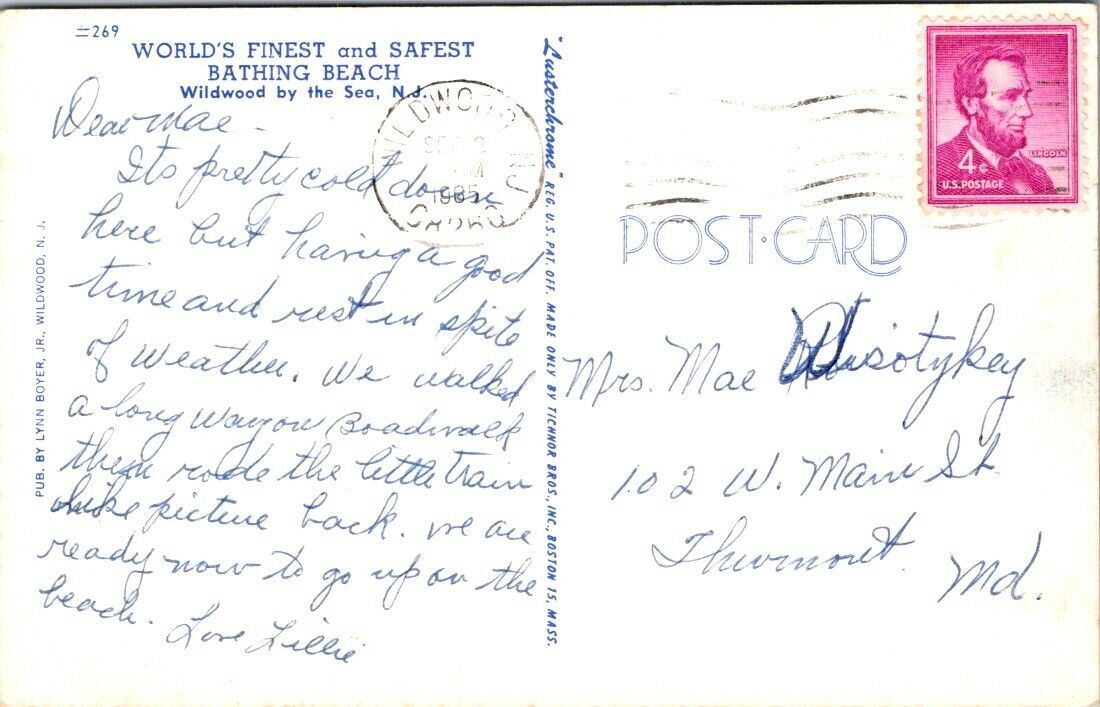 #269
WORLD'S FINEST and SAFEST
BATHING BEACH
Wildwood by the Sea, N.J.
Dear Mae -
Its pretty cold down
here but having a good
time and rest in spite
of weather. We walked
a long way on Boadwalk
then rode the little train
like picture back. we are
ready now to go up on the
beach. Love Lillie
PUB. BY LYNN BOYER, JR., WILDWOOD, N. J.
"Lusterchrome" REG. U.S. PAT. OFF. MADE ONLY BY TICHNOR BROS., INC., BOSTON 15, MASS.
WILDWOOD NJ
SEP 2
M
1965
08260
LINCOLN
4¢
U.S. POSTAGE
POST CARD
Mrs. Mae
102 W. Main St.
Thurmont.
Md.